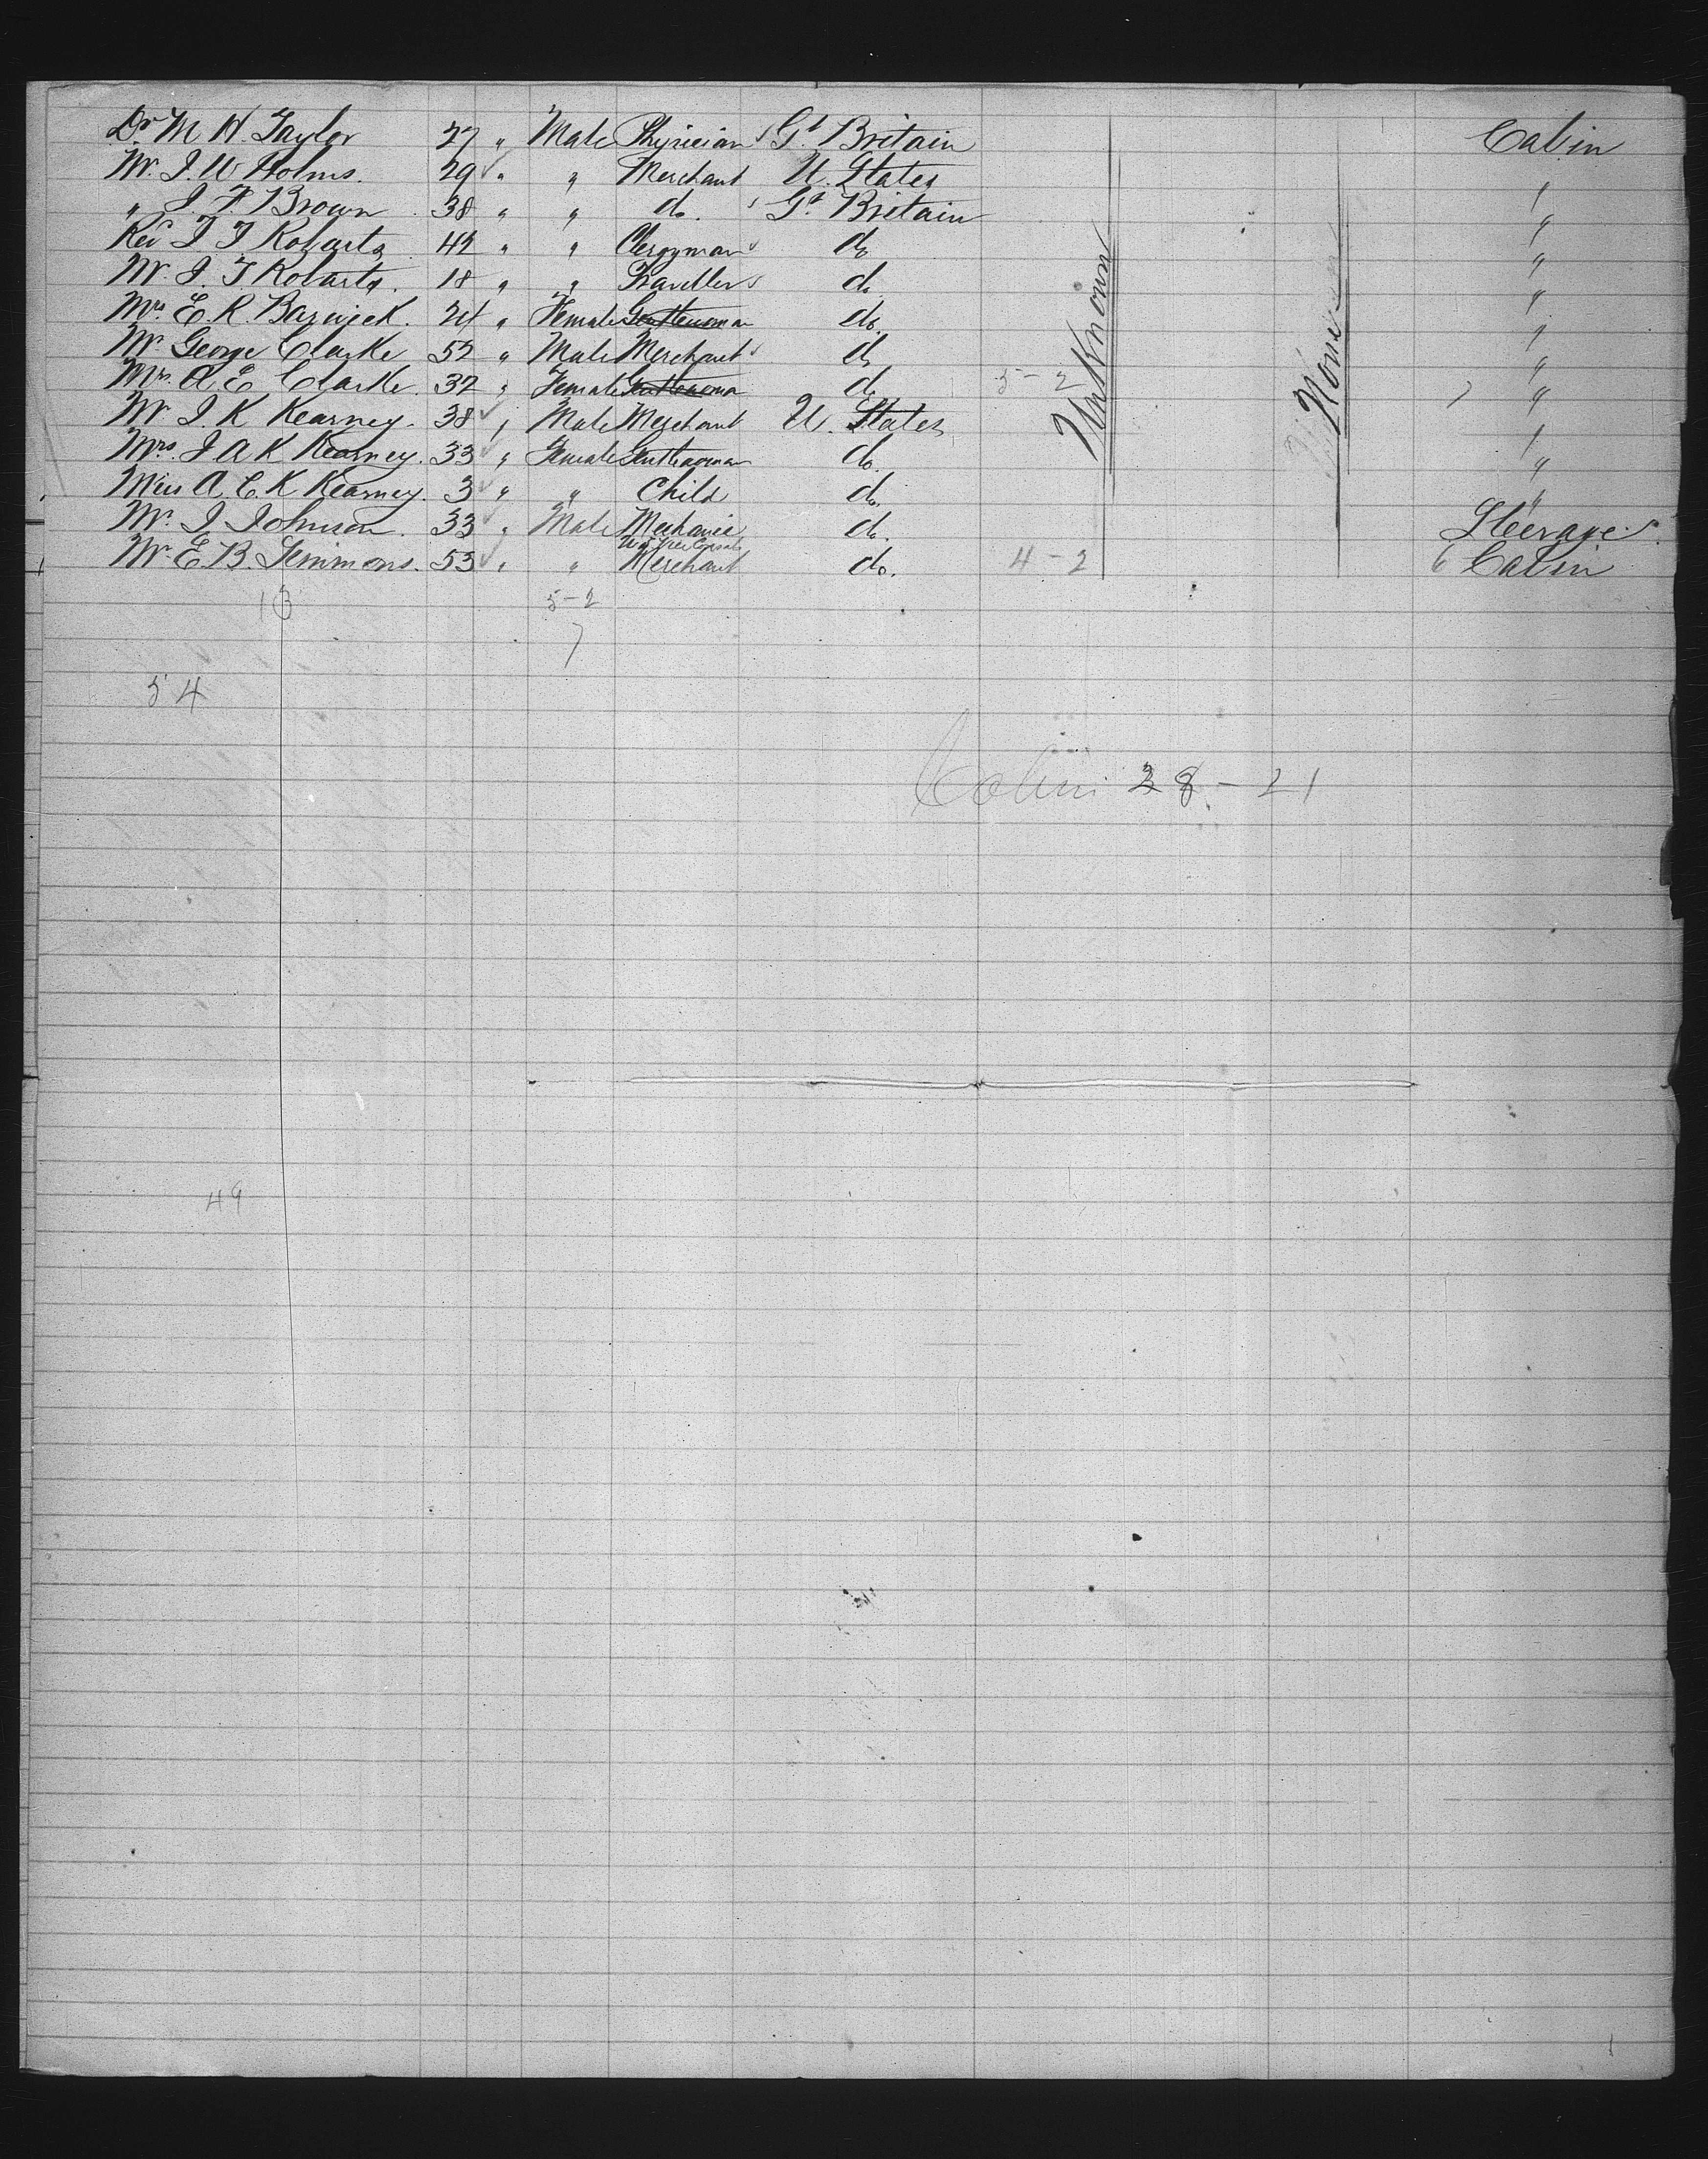 Dr M H. Taylor 27 " Male Physician Gt. Britain Cabin
Mr. J. W Holms. 29 " " Merchant U. States "
" J. F. Brown 38 " " do. Gt. Britain "
Rev T T Robarts 42 " " Clergyman do "
Mr. J. T. Robarts. 18 " " Traveller do. "
Mrs E. R. Barwick. 24 " Female Gentlewoman do. "
Mr George Clarke 52 " Male Merchant do "
Mrs. A E Clarke. 32 " Female Gentlewoman do 5-2 "
Mr J. K Kearney. 38 " Male Merchant U. States "
Mrs. J A K Kearney. 33 " Female Gentlewoman do. "
Miss A. C. K Kearney. 3 " " Child do. "
Mr. J. Johnson. 33 " Male Mechanic do. Steerage.
Mr. E B. Simmons. 53 " " Merchant do. 4-2 6 Cabin
Unknown
None
13 5-2
7
54
Cabin 28-21
49